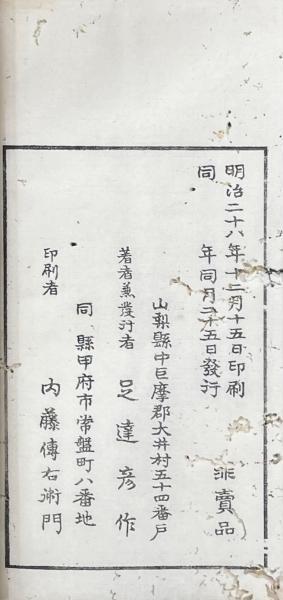 明治二十八年十二月十五日印刷
同 年同月二十五日發行
非賣品
山梨縣中巨摩郡大井村五十四番戶
著者兼發行者 足達彦作
同縣甲府市常盤町八番地
印刷者 內藤傳右衛門